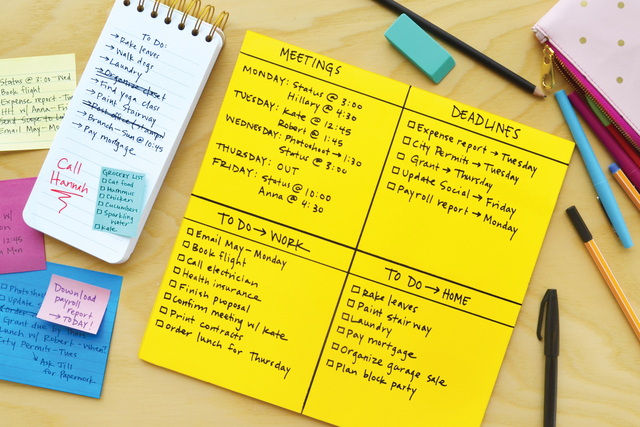 Status @ 3:00 - Wed
Book flight
Expense report - Tu
w/ Anna - Fri
Email May - Mon
TO DO:
→ Rake leaves
→ Walk dogs
→ Laundry
→ Organize closet
→ Find yoga class
→ Paint Stairway
→ Branch - Sun @ 10:45
→ Pay mortgage
Call
Hannah
GROCERY LIST
Cat food
Hummus
Chicken
Cucumber
Sparkling
water
Kale
w/
12:45
Mon
Photosh
Update
Grant due
Lunch w/ Robert - When?
City Permits - Tues
↳ Ask Jill
for Paperwork
Download
payroll
report
→ TODAY!
MEETINGS
MONDAY: Status @ 3:00
Hillary @ 4:30
TUESDAY: Kate @ 12:45
Robert @ 1:45
WEDNESDAY: Photoshoot → 1:30
Status @ 3:00
THURSDAY: OUT
FRIDAY: Status @ 10:00
Anna @ 4:30
DEADLINES
Expense report → Tuesday
City Permits → Tuesday
Grant → Thursday
Update Social → Friday
Payroll report → Monday
TO DO → WORK
Email May - Monday
Book flight
Call electrician
Health insurance
Finish proposal
Confirm meeting w/ Kate
Print contracts
order lunch for Thursday
TO DO → HOME
Rake leaves
Paint Stair way
Laundry
Pay mortgage
Organize garage sale
Plan block party